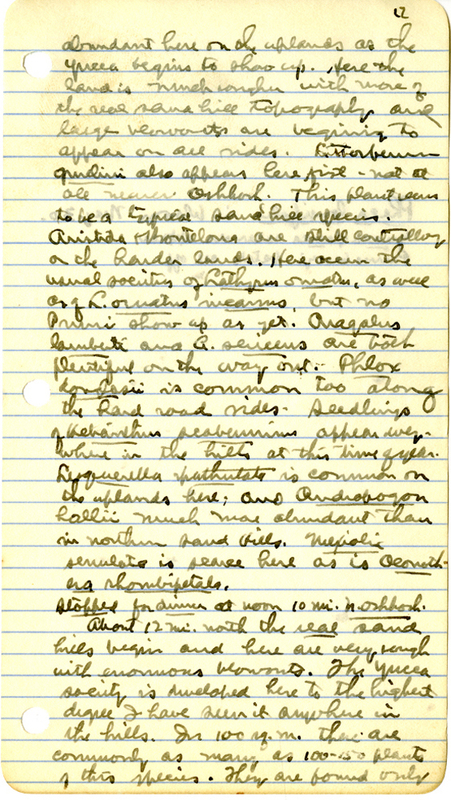 12
abundant here on the uplands as the
yucca begins to show up. Here the
land is much rougher with more of
the real sand hill topography and
large blowouts are beginning to
appear on all sides.
also appears here first - not at
all nearer Oshkosh. This plant seems
to be a typical sand hill species.
Aristida & Bouteloua are still controlling
on the harder lands. Here occur the
usual societies of Lathyrus ornatus, as well
as of L. ornatus incanus, but no
Pruni show up as yet. Aragalus
lamberti and A. sericeus are both
plentiful on the way out. Phlox
douglasii is common too along
the hard road sides. Seedlings
of Helianthus appear every-
where in the hills at this time of year.
Lesquerella spathulata is common on
the uplands here; and Andropogon
hallii much more abundant than
in northern sand hills. Meriolix
serrulata is scarce here as is Oenoth-
era rhombipetala.
Stopped for dinner at noon 10 mi. n. Oshkosh.
About 12 mi. north the real sand
hills begin and here are very rough
with enormous blowouts. The yucca
society is developed here to the highest
degree I have seen it anywhere in
the hills. In 100 sq. m. there are
commonly as many as 100-150 plants
of this species. They are found only